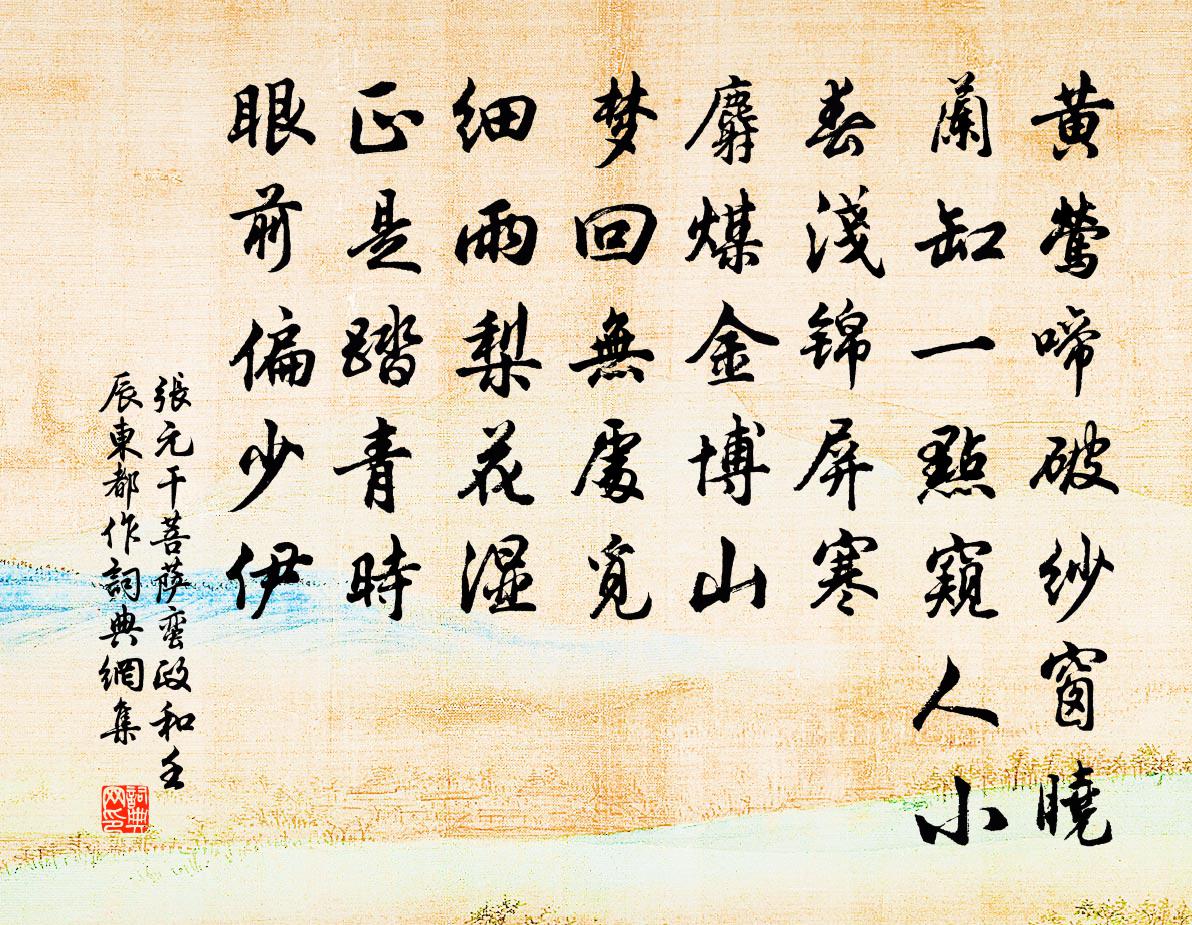 黄鶯啼破紗窗曉
蘭缸一點窺人小
春淺錦屏寒
麝煤金博山
梦回無處覓
細雨梨花濕
正是踏青時
眼前偏少伊
張元干菩萨蛮政和壬
辰東都作詞典網集
詞典
网印